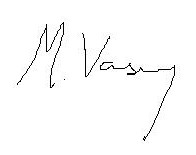 M. Vasy